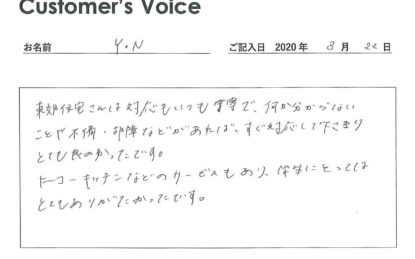 Customer's Voice
お名前 Y.N ご記入日 2020 年 3 月 22 日
東郊住宅さんは対応もいつも丁寧で、何か分からない
ことや不備・故障などがあれば、すぐ対応して下さり
とても良かったです。
トーコーキッチンなどのサービスもあり、学生にとっては
とてもありがたかったです。